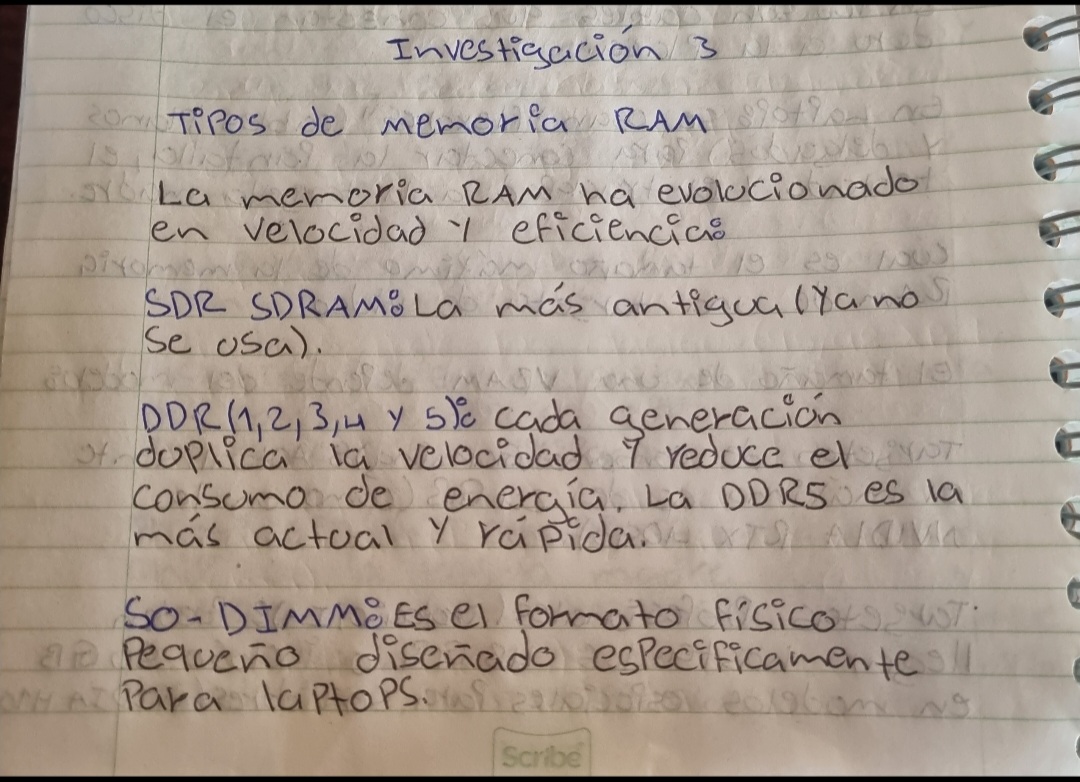 Investigación 3
Tipos de memoria RAM
La memoria RAM ha evolucionado
en velocidad y eficiencia:
SDR SDRAM: La más antigua (Ya no
se usa).
DDR (1,2,3,4 y 5): cada generación
duplica la velocidad y reduce el
consumo de energía. La DDR5 es la
más actual y rápida.
SO-DIMM: Es el formato físico
Pequeño diseñado especificamente
Para laptops.
Scribe